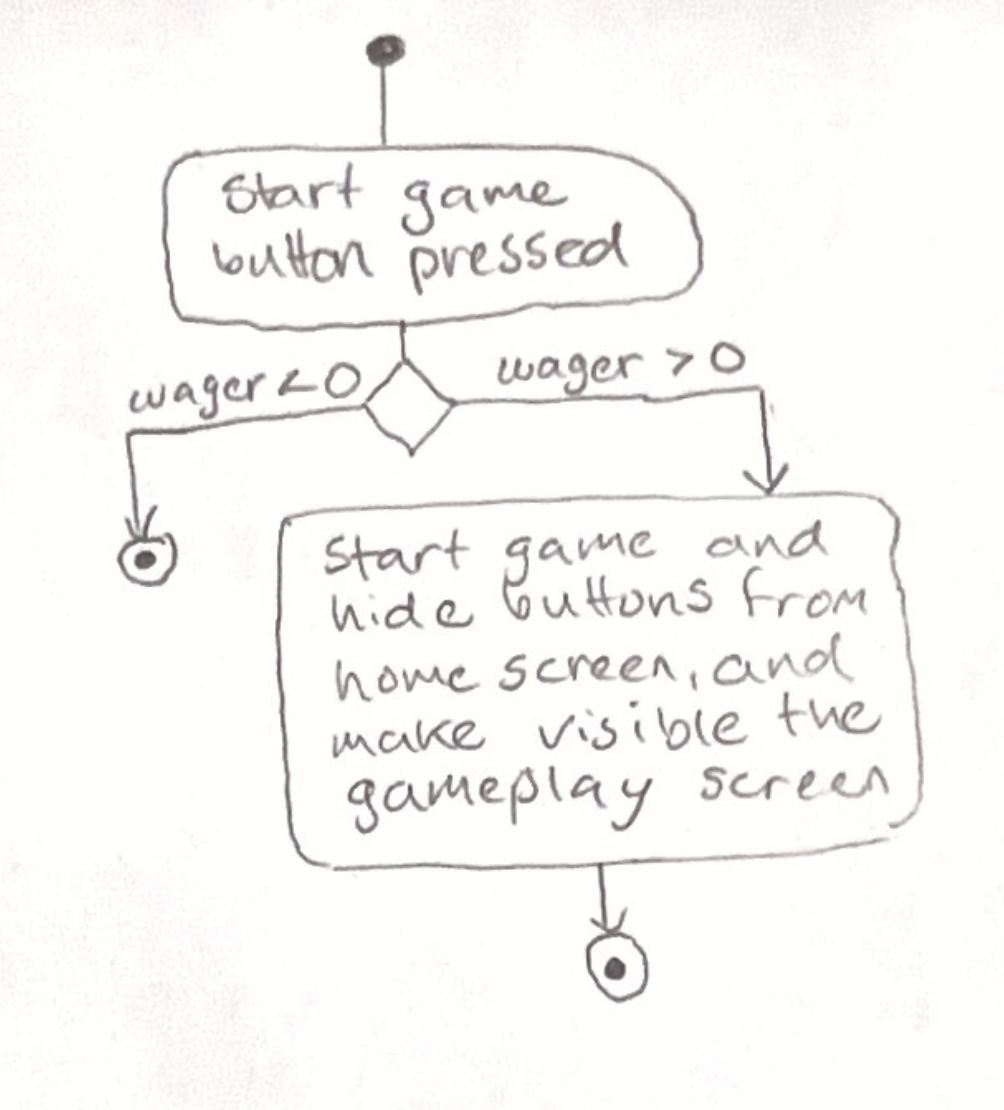 Start game
button pressed
wager < 0
wager > 0
Start game and
hide buttons from
home screen, and
make visible the
gameplay screen